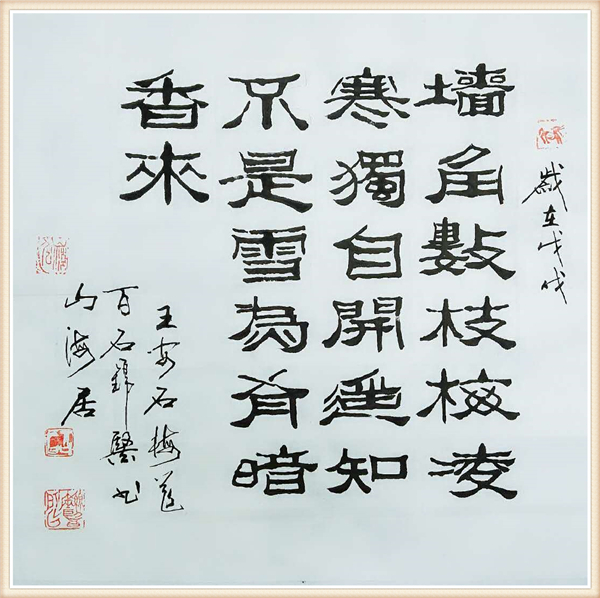 歲在戊戌
墙角數枝梅凌
寒獨自開遥知
不是雪為有暗
香來
王安石梅花
百石
山海居